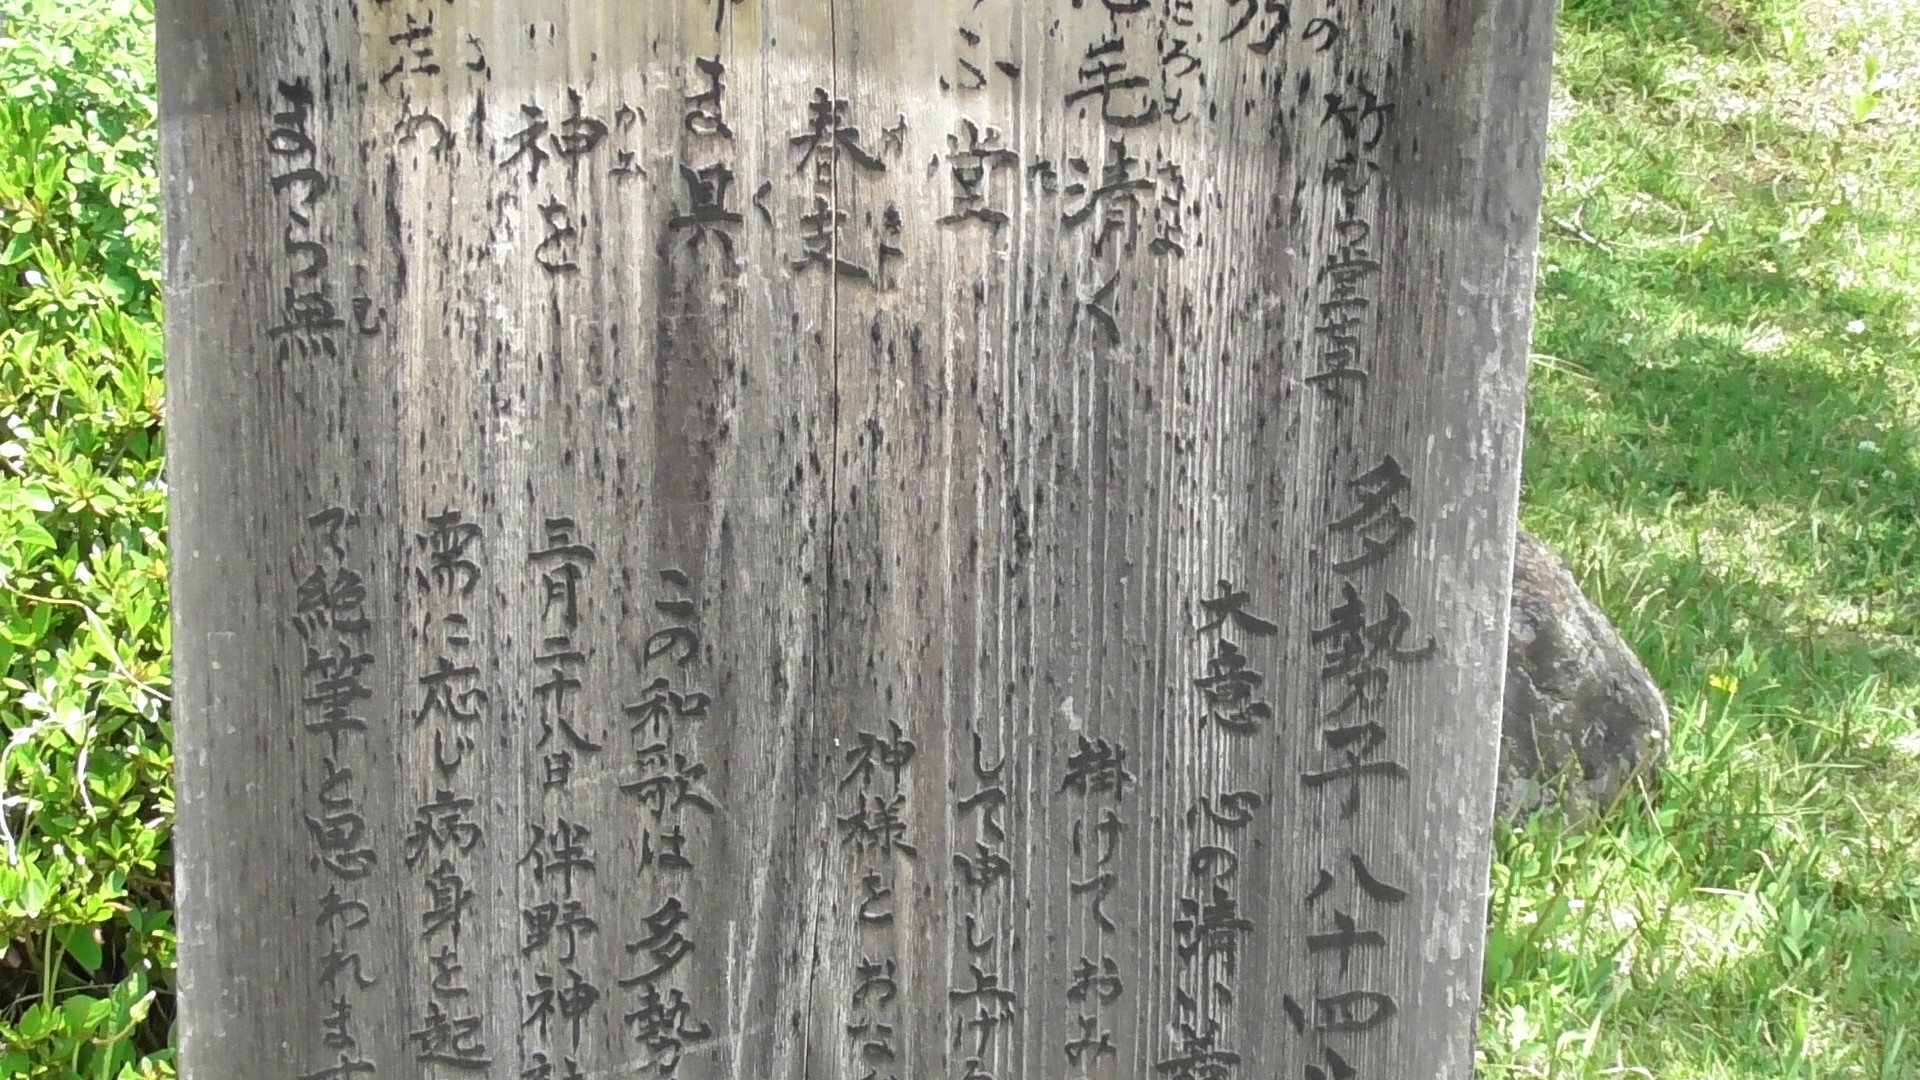 の竹むら堂草
乃
毛清く
ころむ きよ
ふ堂
た
春支
す きよ
ま具
く
神を
かみ
荘め
さ
まつら無
む
多勢子八十四
大意 心の清い
掛けておみ
して申し上げる
神様をおな
この和歌は多勢
三月二十八日伴野神社
需に応じ病身を起
で絶筆と思われます